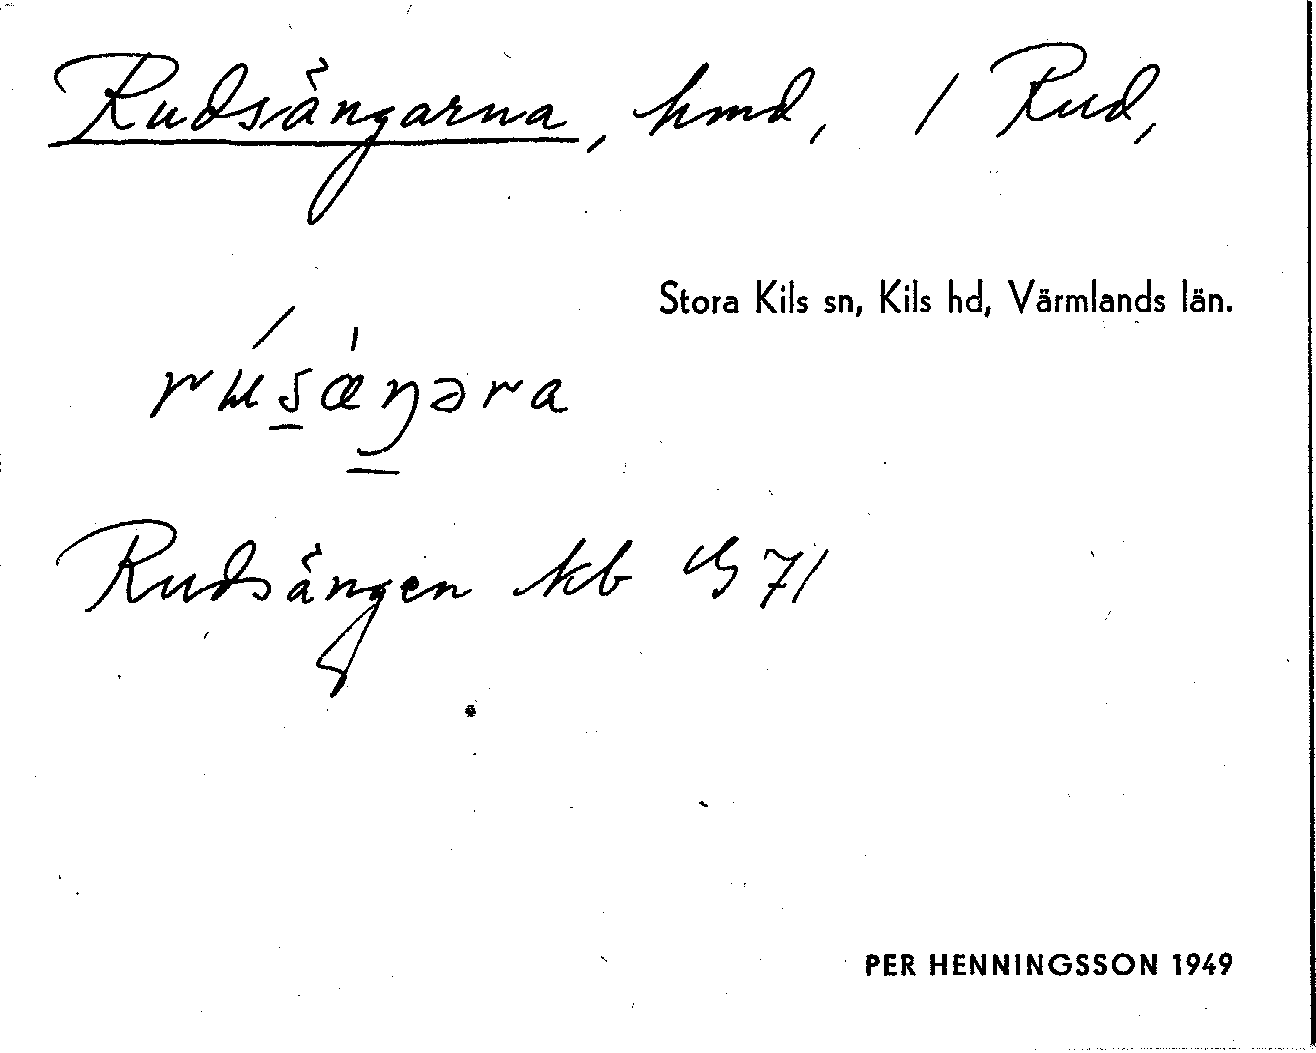 Rudsängarna, hmd, / Rud,
Stora Kils sn, Kils hd, Värmlands län.
rʉ́sæ̀ŋəra
Rudsängen kb 71
PER HENNINGSSON 1949